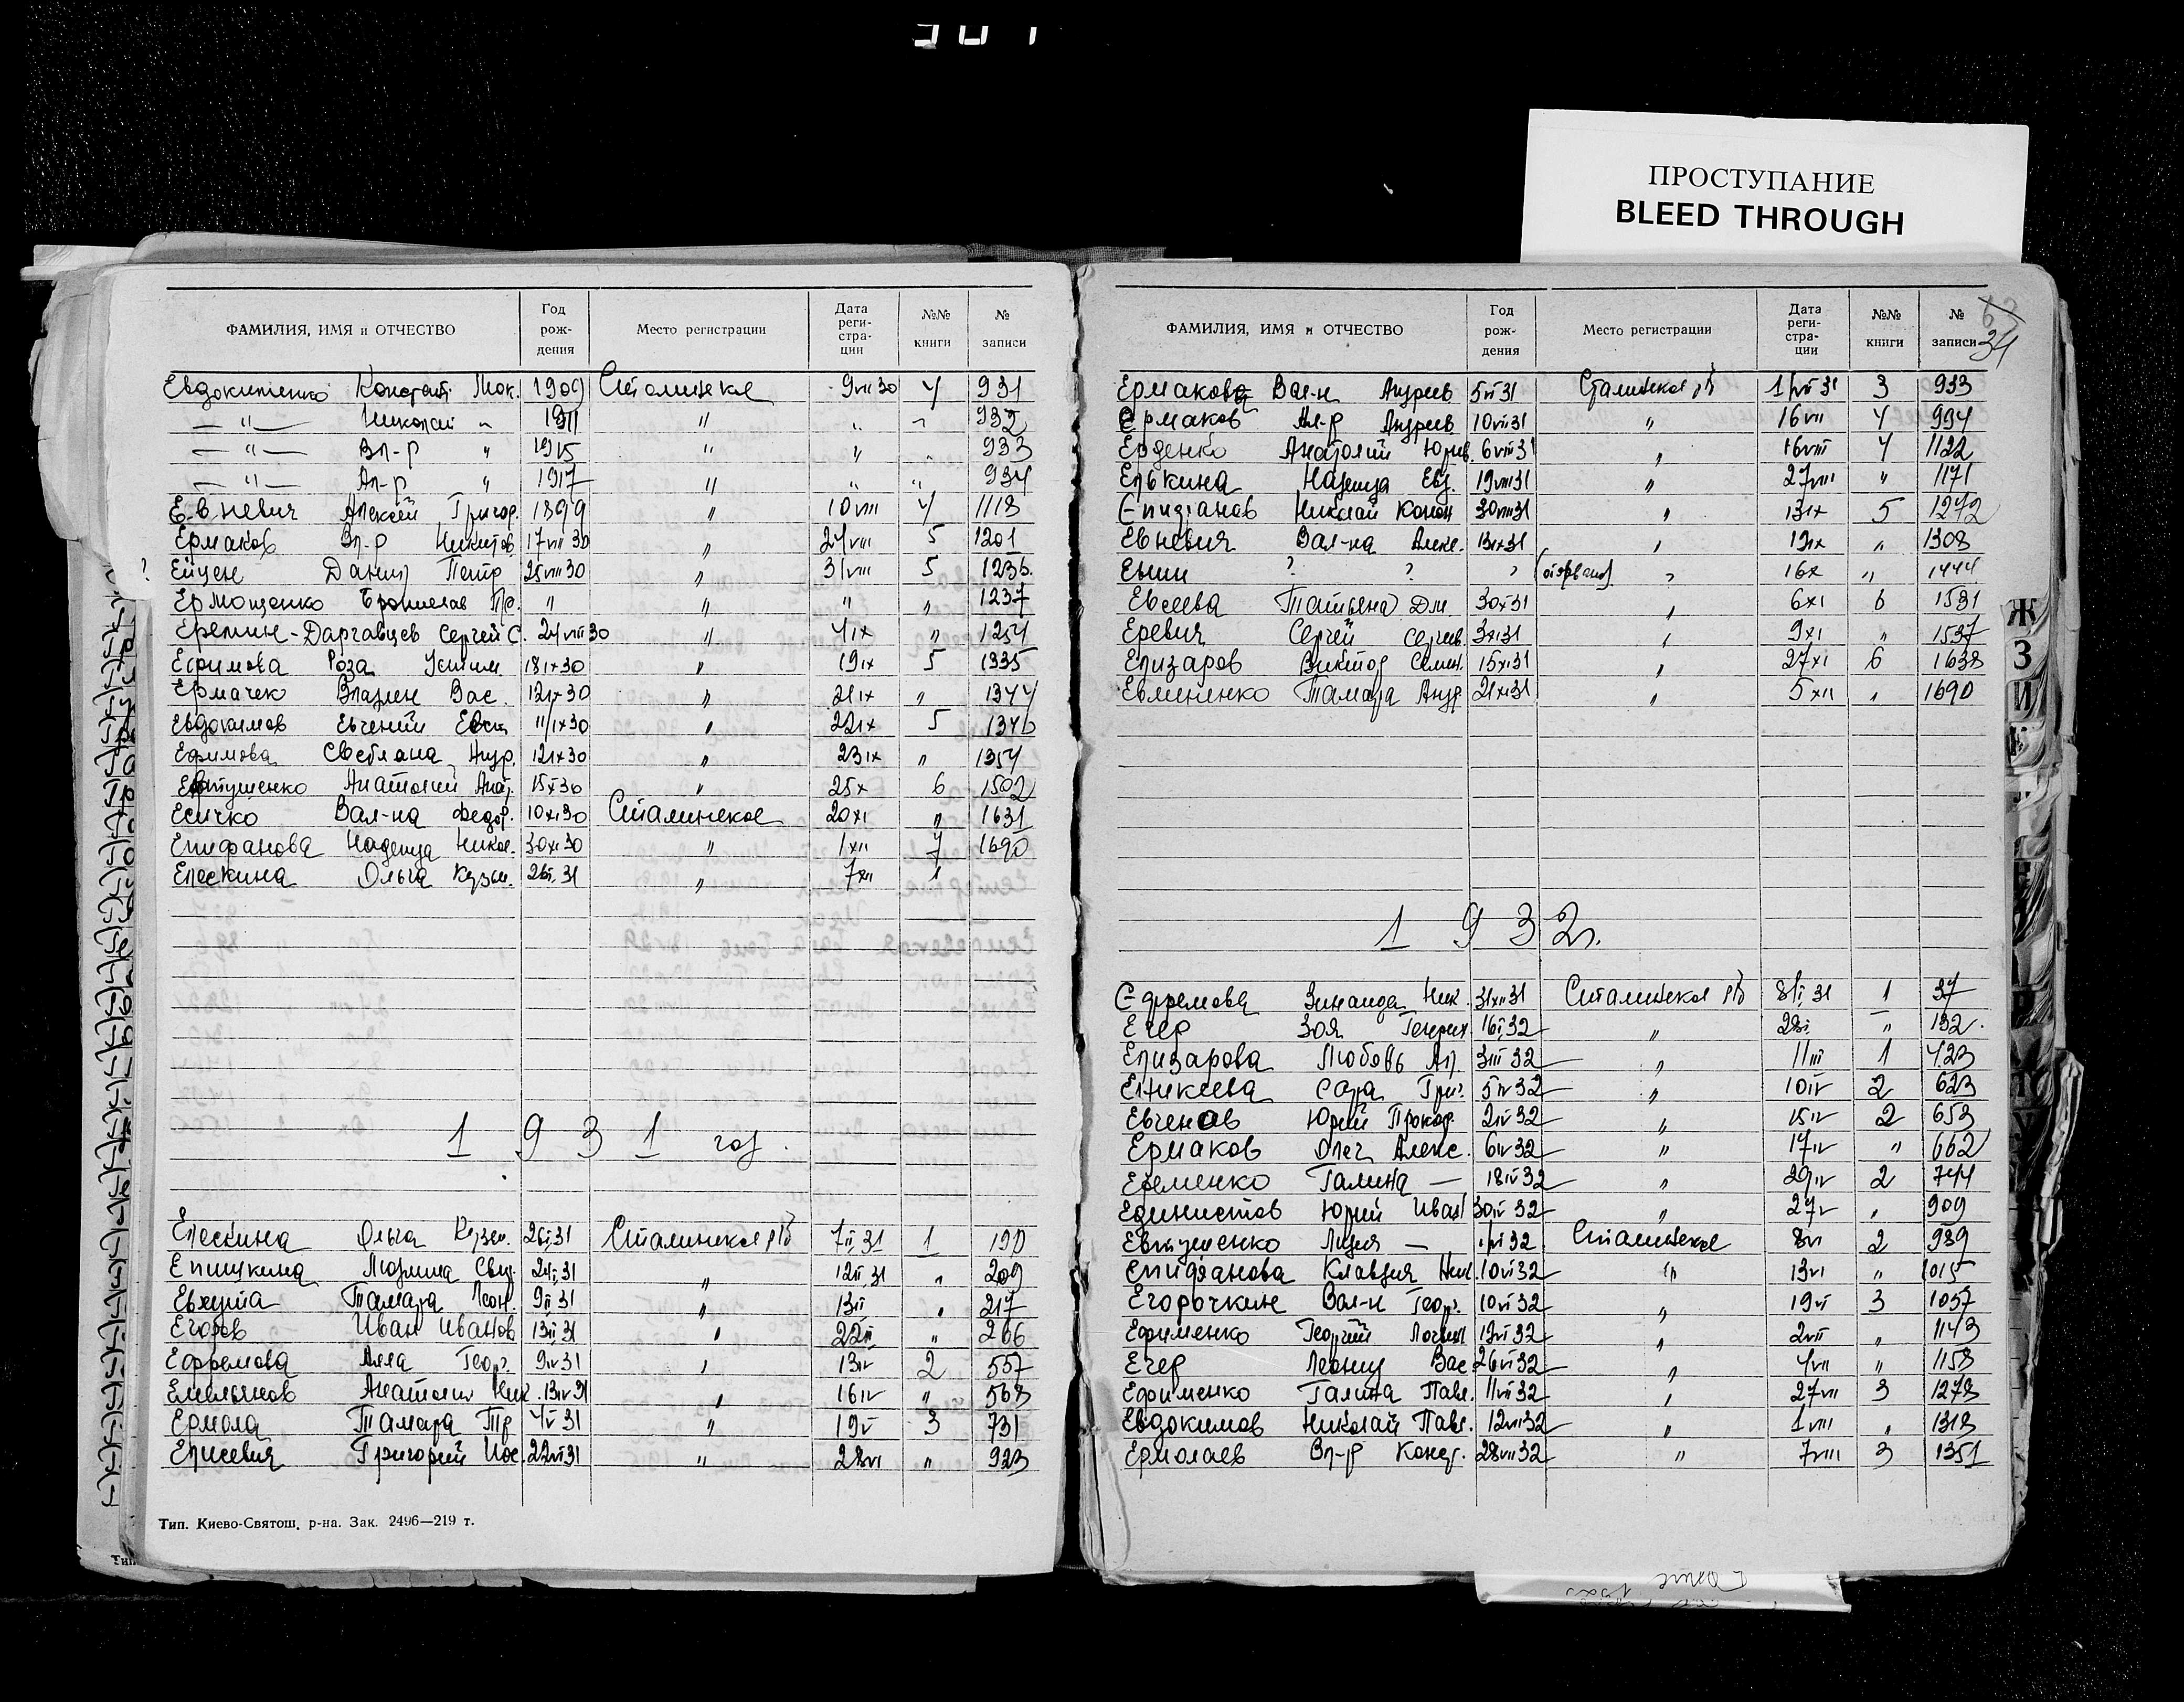 ПРОСТУПАНИЕ
BLEED THROUGH
ФАМИЛИЯ, ИМЯ и ОТЧЕСТВО Год рождения Место регистрации Дата регистрации №№ книги № записи
Евдокименко Констант Мок. 1909 Сталинское 9 VII 30 4 931
— " — Николай " 1911 " " " 932
— " — Вл-р " 1915 " " " 933
— " — Ал-р " 1917 " " " 934
Евневич Алексей Григор. 1899 " 10 VIII 4 1118
Ермаков Вл-р Никитов. 17 VII 30 " 24 VIII 5 1201
? Ейцен Данил Петр 25 VIII 30 " 31 VIII 5 1236.
Ермощенко Бронислав " " " " 1237
Еремин-Даргавцев Сергей С. 24 VIII 30 " 4 IX " 1254
Ефимова Роза 18 IX 30 " 19 IX 5 1335
Ермачек Владлен Вас. 12 IX 30 " 21 IX " 1344
Евдокимов Евгений 11 IX 30 " 22 IX 5 1346
Ефимова Светлана Андр. 12 IX 30 " 23 IX " 1354
Евтушенко Анатолий Анат. 15 X 30 " 25 X 6 1502
Есичко Вал-на Федор. 10 XI 30 Сталинское 20 XI " 1631
Епифанова Надежда Никол. 30 XI 30 " 1 XII 7 1690
Елескина Ольга Кузьм. 26 I 31 " 7 XII 1
1931 год.
Елескина Ольга Кузьм. 26 I 31 Сталинское 7 II 31 1 190
Епишкина Людмила 24 I 31 " 12 II 31 " 209
Евхута Тамара Леон. 9 II 31 " 13 II " 217
Егоров Иван Иванов 13 II 31 " 22 II " 266
Ефремова Алла Георг. 9 IV 31 " 13 IV 2 557
Емельянов Анатолий Ник. 13 IV 31 " 16 IV " 568
Ермола Тамара Тр 4 V 31 " 19 V 3 731
Елисевич Григорий Иос. 22 VI 31 " 28 VI " 923
Тип. Киево-Святош. р-на. Зак. 2496—219 т.
34
ФАМИЛИЯ, ИМЯ и ОТЧЕСТВО Год рождения Место регистрации Дата регистрации №№ книги № записи
Ермакова Вал-н Андреев 5 VI 31 Сталинское 3 933
Ермаков Ал-р Андреев 10 VII 31 " 16 VII 4 994
Ерденко Анатолий Юрив. 6 VIII 31 " 16 VIII 4 1122
Елькина Надежда Евг. 19 VIII 31 " 27 VIII " 1171
Епифанов Николай Конон 30 VIII 31 " 13 IX 5 1272
Евневич Вал-на Алекс. 13 IX 31 " 19 IX " 1308
Енин ? ? ? (оторвано) " 16 X " 1444
Евсеева Татьяна Дм. 30 X 31 " 6 XI 6 1581
Еревич Сергей Сергев. 3 XI 31 " 9 XI " 1597
Елизаров Виктор Семен. 15 XI 31 " 27 XI 6 1638
Евмененко Тамара Андр 21 XI 31 " 5 XII " 1690
1932 г.
Ефремова Зинаида Ник. 31 XII 31 Сталинское 8 I 31 1 37
Егер Зоя Генрих 16 I 32 " 28 I " 132.
Елизарова Любовь Ал. 3 III 32 " 11 III 1 423
Еникеева Сара Григ. 5 IV 32 " 10 IV 2 623
Евченов Юрий Прокоф. 2 IV 32 " 15 IV 2 653
Ермаков Олег Алекс. 6 IV 32 " 17 IV " 662
Еременко Галина — 18 IV 32 " 29 IV 2 744
Единистов Юрий Иван 30 IV 32 " 27 V " 909
Евтушенко Лидия — 1 VI 32 Сталинское 8 VI 2 989
Епифанова Клавдия Ник. 10 VI 32 " 13 VI " 1015
Егорочкин Вал-н Георг. 10 VI 32 " 19 VI 3 1057
Ефименко Георгий Логвин 19 VI 32 " 2 VII " 1143
Егер Леонид Вас 26 VI 32 " 4 VII " 1158
Ефименко Галина Павл. 11 VII 32 " 27 VII 3 1278
Евдокимов Николай Павл. 12 VII 32 " 1 VIII " 1318
Ермолаев Вл-р Конст. 28 VII 32 " 7 VIII 3 1351
Ж
З
И